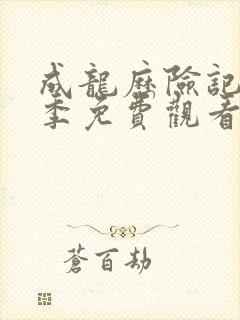 成龍歷險記
季免費觀看
蒼百劫